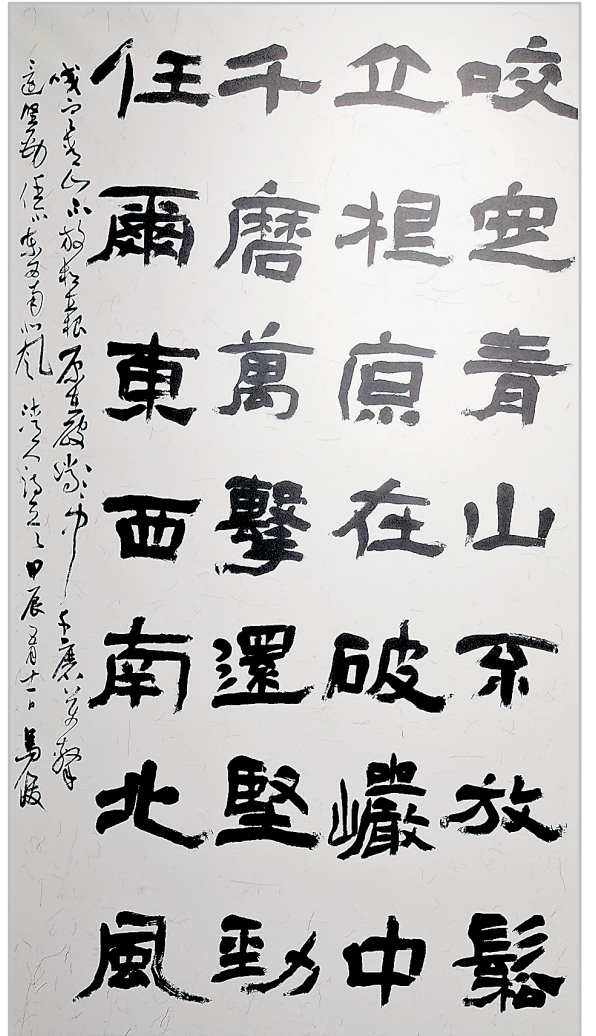 咬定青山不放鬆
立根原在破巖中
千磨萬擊還堅勁
任爾東西南北風
咬定青山不放松立根原在破岩中千磨万擊
還堅勁任尔東西南北風 清人詩 甲辰 月十一日 馬